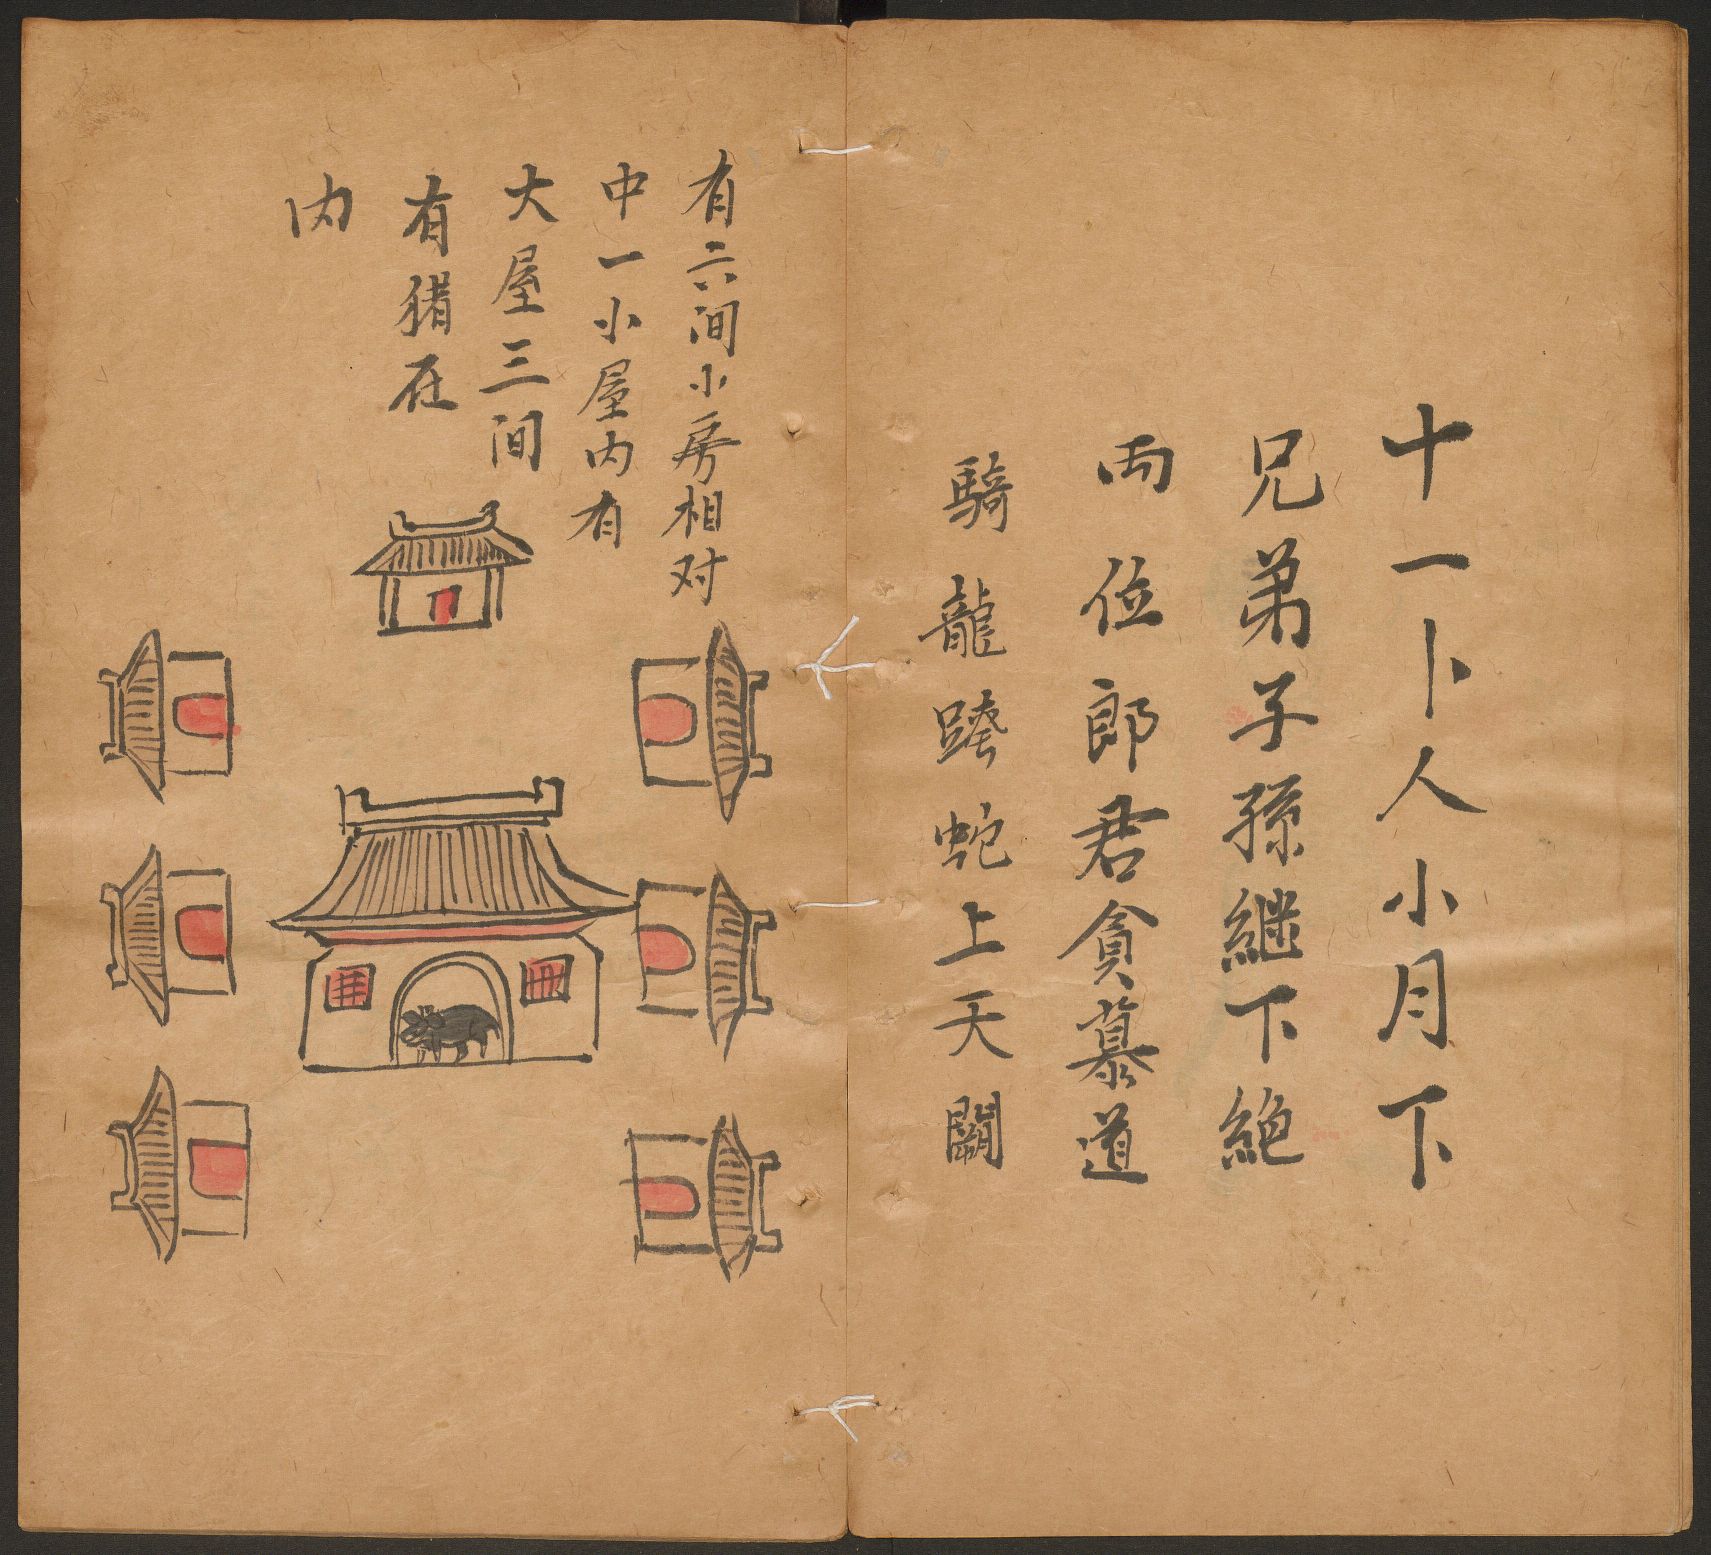 十一卜人小月下
兄弟子孫継下絶
両位郎君貪慕道
騎龍跨蛇上天關
有六间小房相对
中一小屋内有
大屋三间
有猪在
内